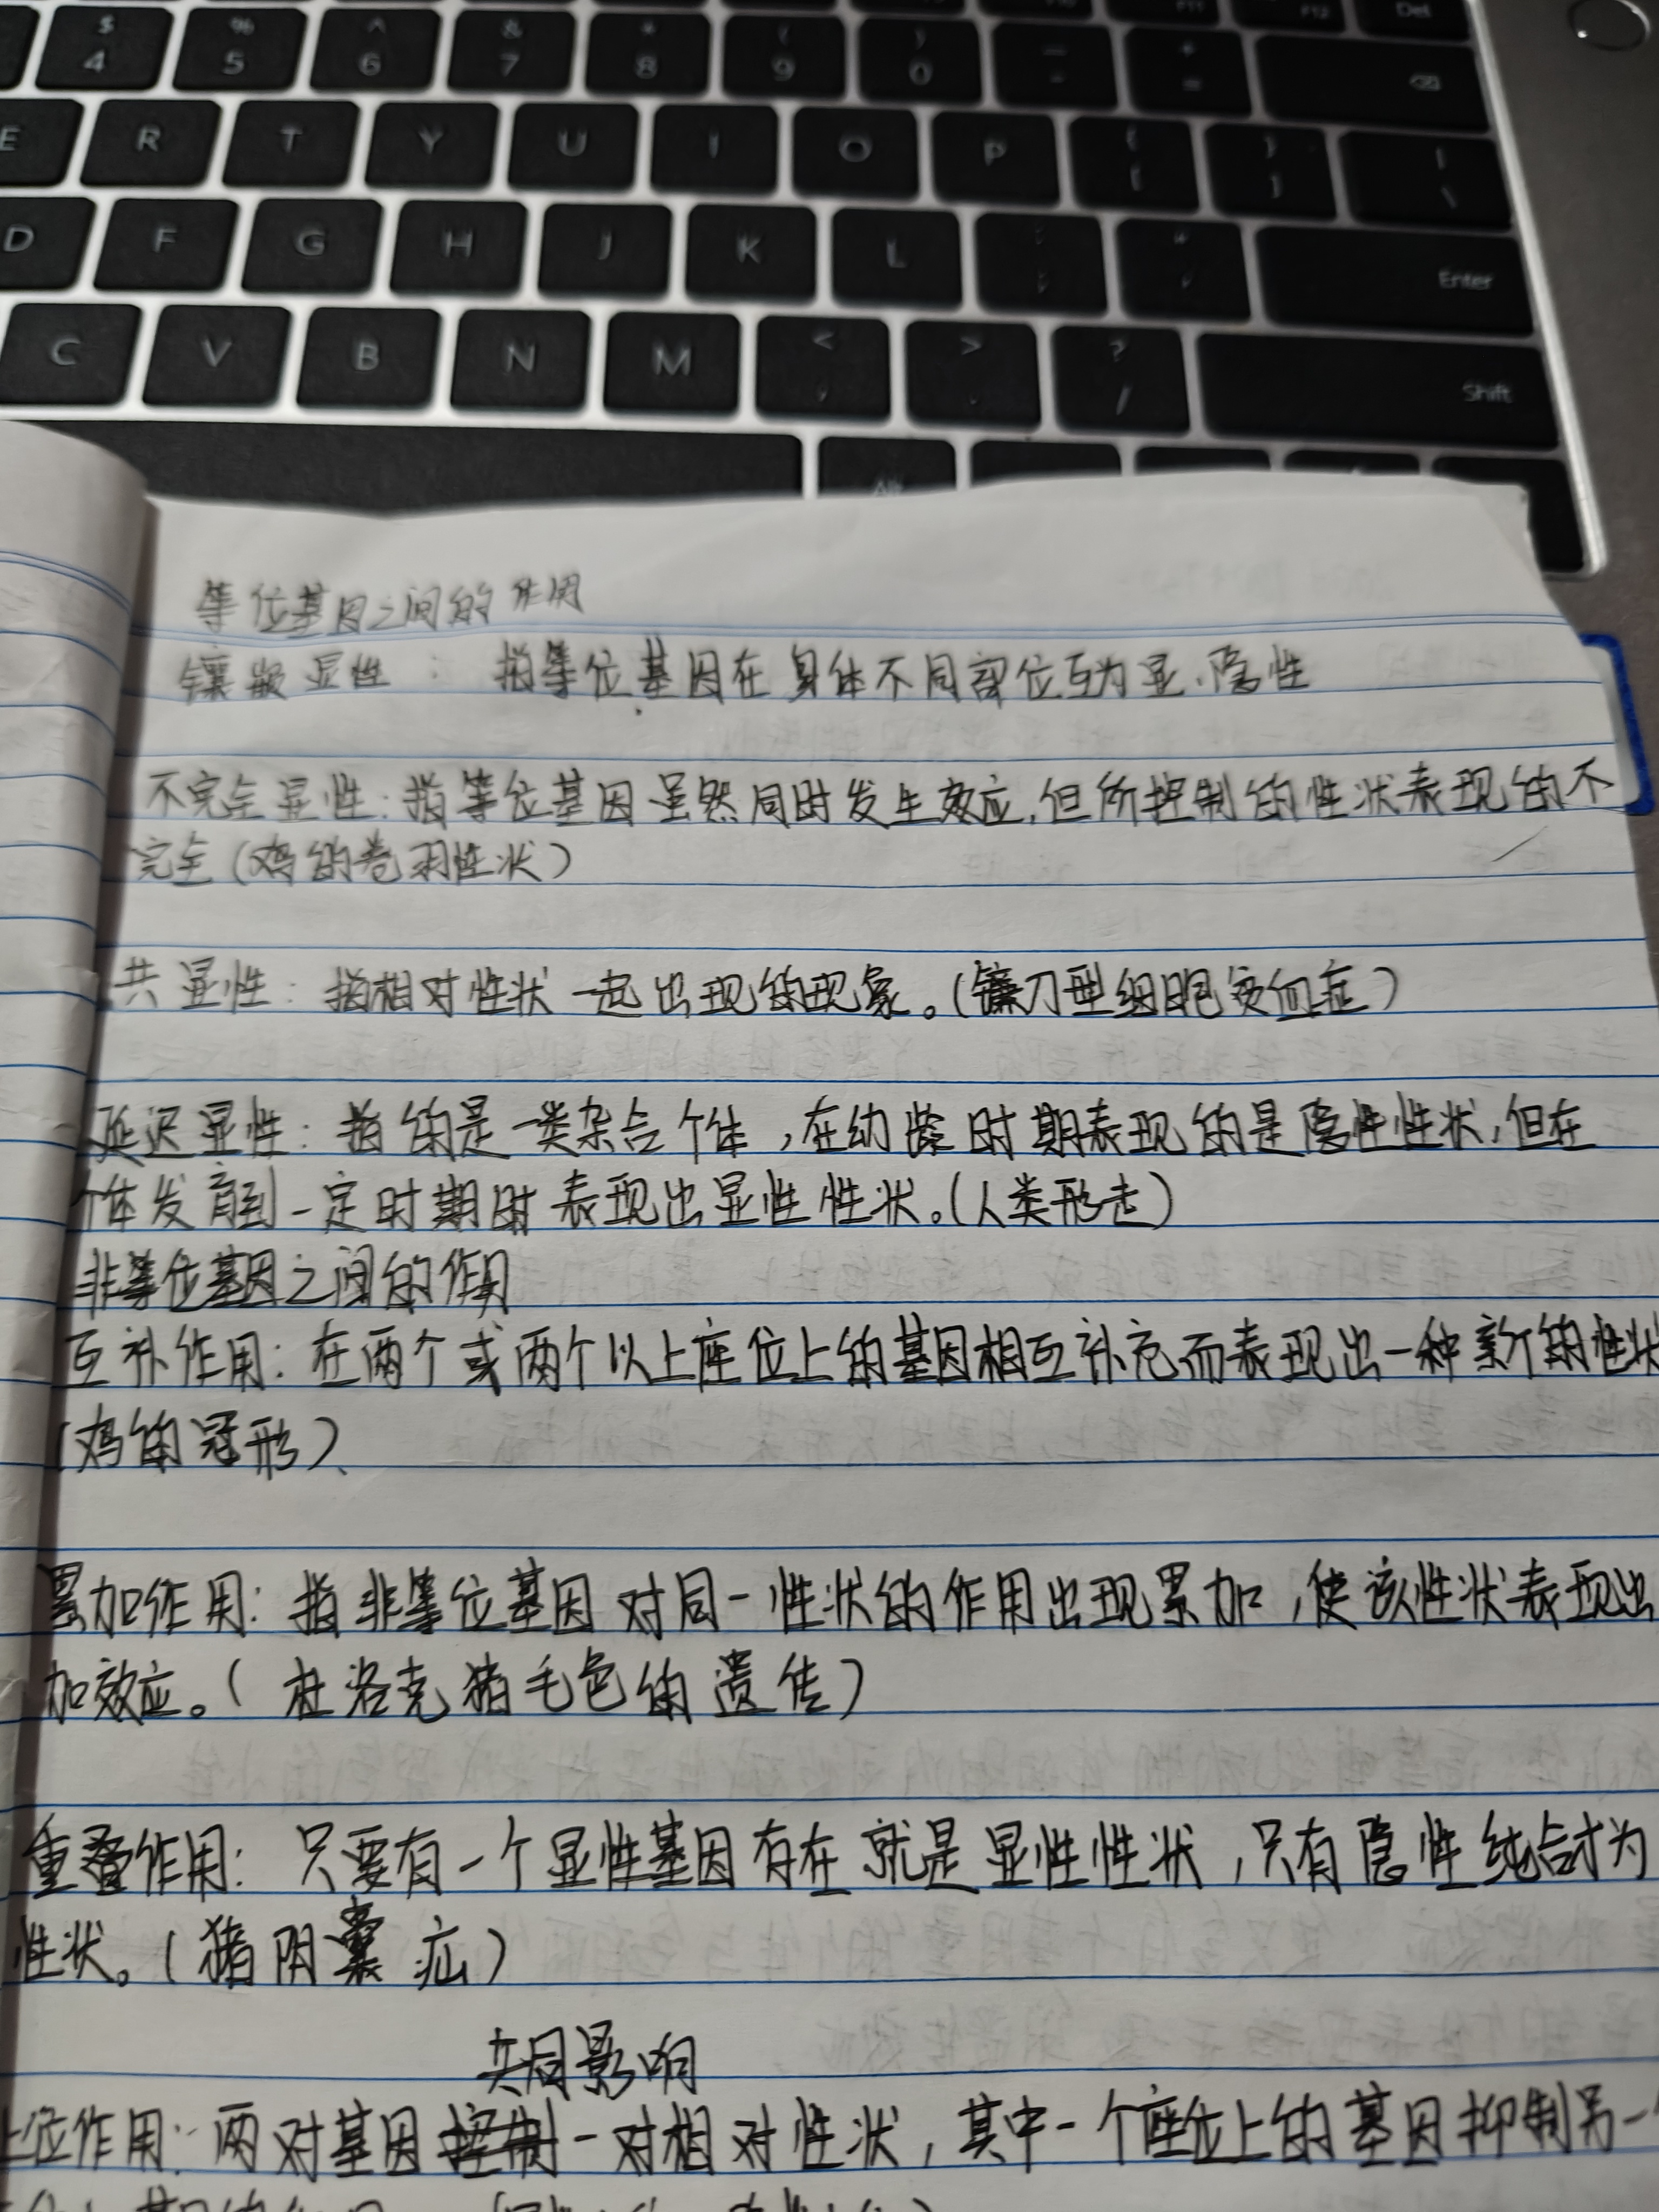 $ % ^ & * ( )
4 5 6 7 8 9 0 - =
E R T Y U I O P
D F G H J K L Enter
C V B N M < > ? Shift
Del
等位基因之间的作用
镶嵌显性：指等位基因在身体不同部位互为显、隐性
不完全显性：指等位基因虽然同时发生效应，但所控制的性状表现的不
完全（鸡的卷羽性状）
共显性：指相对性状一起出现的现象。（镰刀型细胞贫血症）
延迟显性：指的是一类杂合个体，在幼龄时期表现的是隐性性状，但在
个体发育到一定时期时表现出显性性状。（人类形走）
非等位基因之间的作用
互补作用：在两个或两个以上座位上的基因相互补充而表现出一种新的性状
（鸡的冠形）、
累加作用：指非等位基因对同一性状的作用出现累加，使该性状表现出
加效应。（杜洛克猪毛色的遗传）
重叠作用：只要有一个显性基因存在就是显性性状，只有隐性纯合才为
性状。（猪阴囊疝）
共同影响
上位作用：两对基因控制一对相对性状，其中一个座位上的基因抑制另一